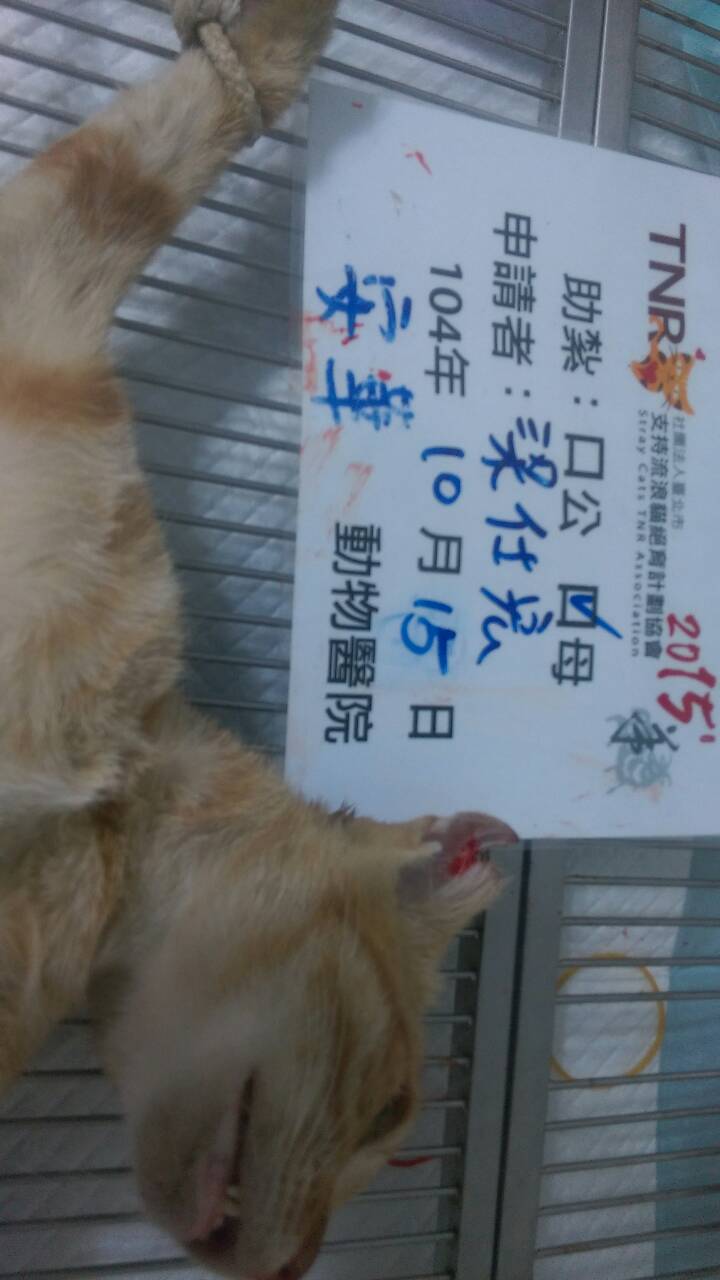 TNR 社團法人臺北市
支持流浪貓絕育計劃協會
Stray Cats TNR Association
2015'
羊
助紮：口公 口母
申請者：梁仕宛
104年 10月 15日
安華 動物醫院